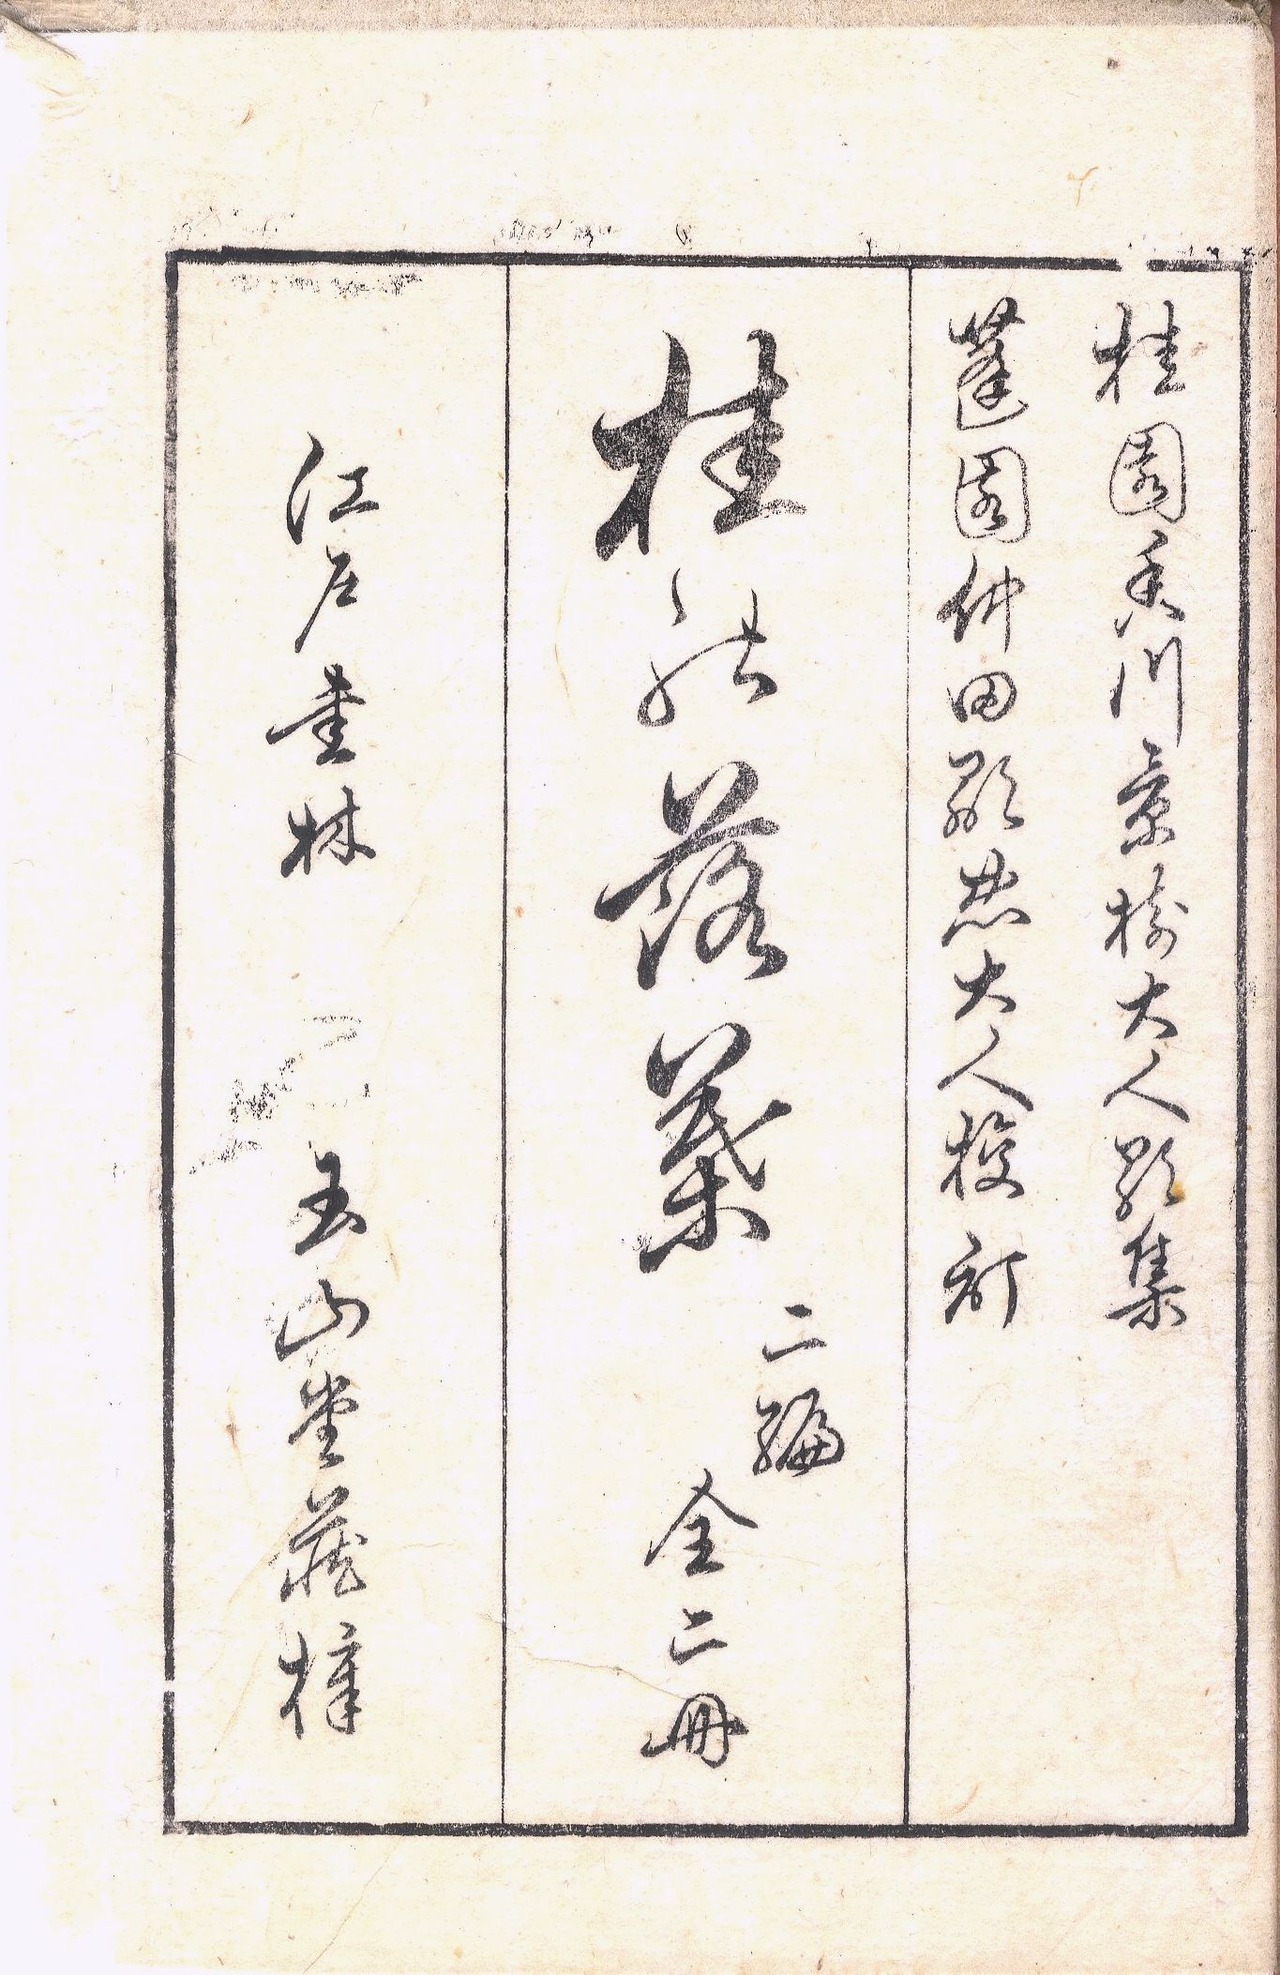 桂園香川景樹大人歌集
蓬園仲田顕忠大人校訂
桂能落葉
二編
全二冊
江戸書林
玉山堂蔵梓